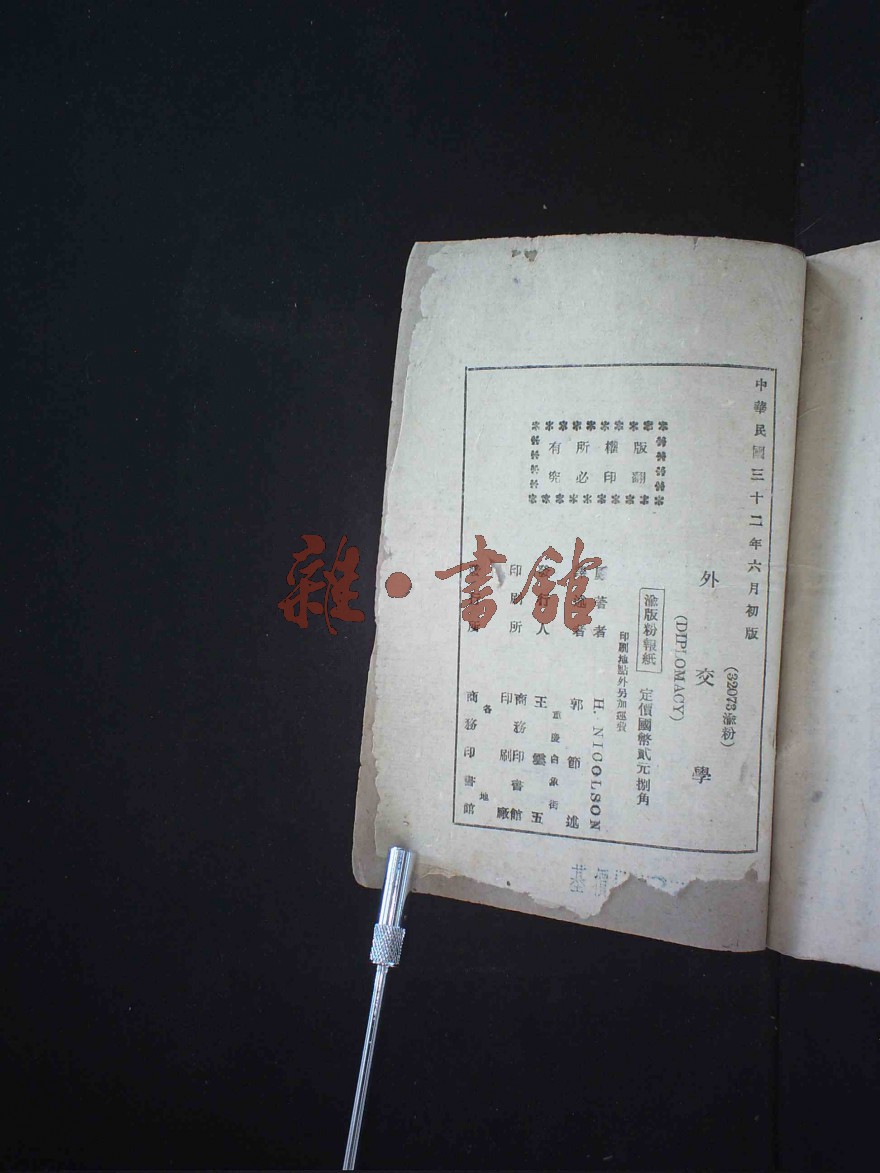 中華民國三十二年六月初版
(32073渝粉)
外交學
(DIPLOMACY)
渝版粉報紙 定價國幣貳元捌角
印刷地點外另加運費
版權所有
翻印必究
原著者 H. NICOLSON
述者 郭節述
重慶白象街
發行人 王雲五
印刷所 商務印書館
印刷廠
各地
發行所 商務印書館
雜·書館